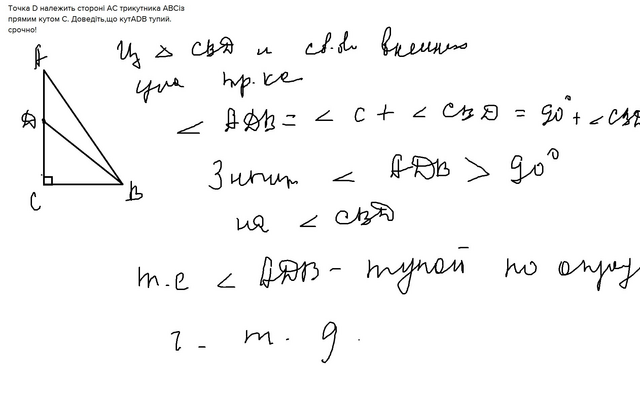 Точка D належить стороні AC трикутника ABCіз
прямим кутом C. Доведіть,що кутADB тупий.
срочно!
A
D
C
B
Из △ CBD и св.ва внешнего
угла тр.ка
∠ ADB = ∠ C + ∠ CBD = 90° + ∠ CBD
Значит ∠ ADB > 90°
на ∠ CBD
т.е ∠ ADB - тупой по опред
ч - т. д.